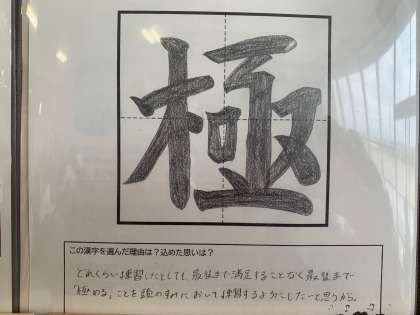 極
この漢字を選んだ理由は？込めた思いは？
どれくらい練習したとしても、最後まで満足することなく最後まで
「極める」ことを頭のすみにおいて練習するようにしたいと思うから。